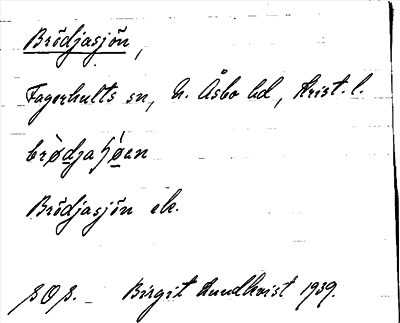 Brödjasjön,
Fagerhults sn, N. Åsbo hd, Krist. l.
Brödjasjön ek.
SOS. – Birgit Lundkvist 1939.